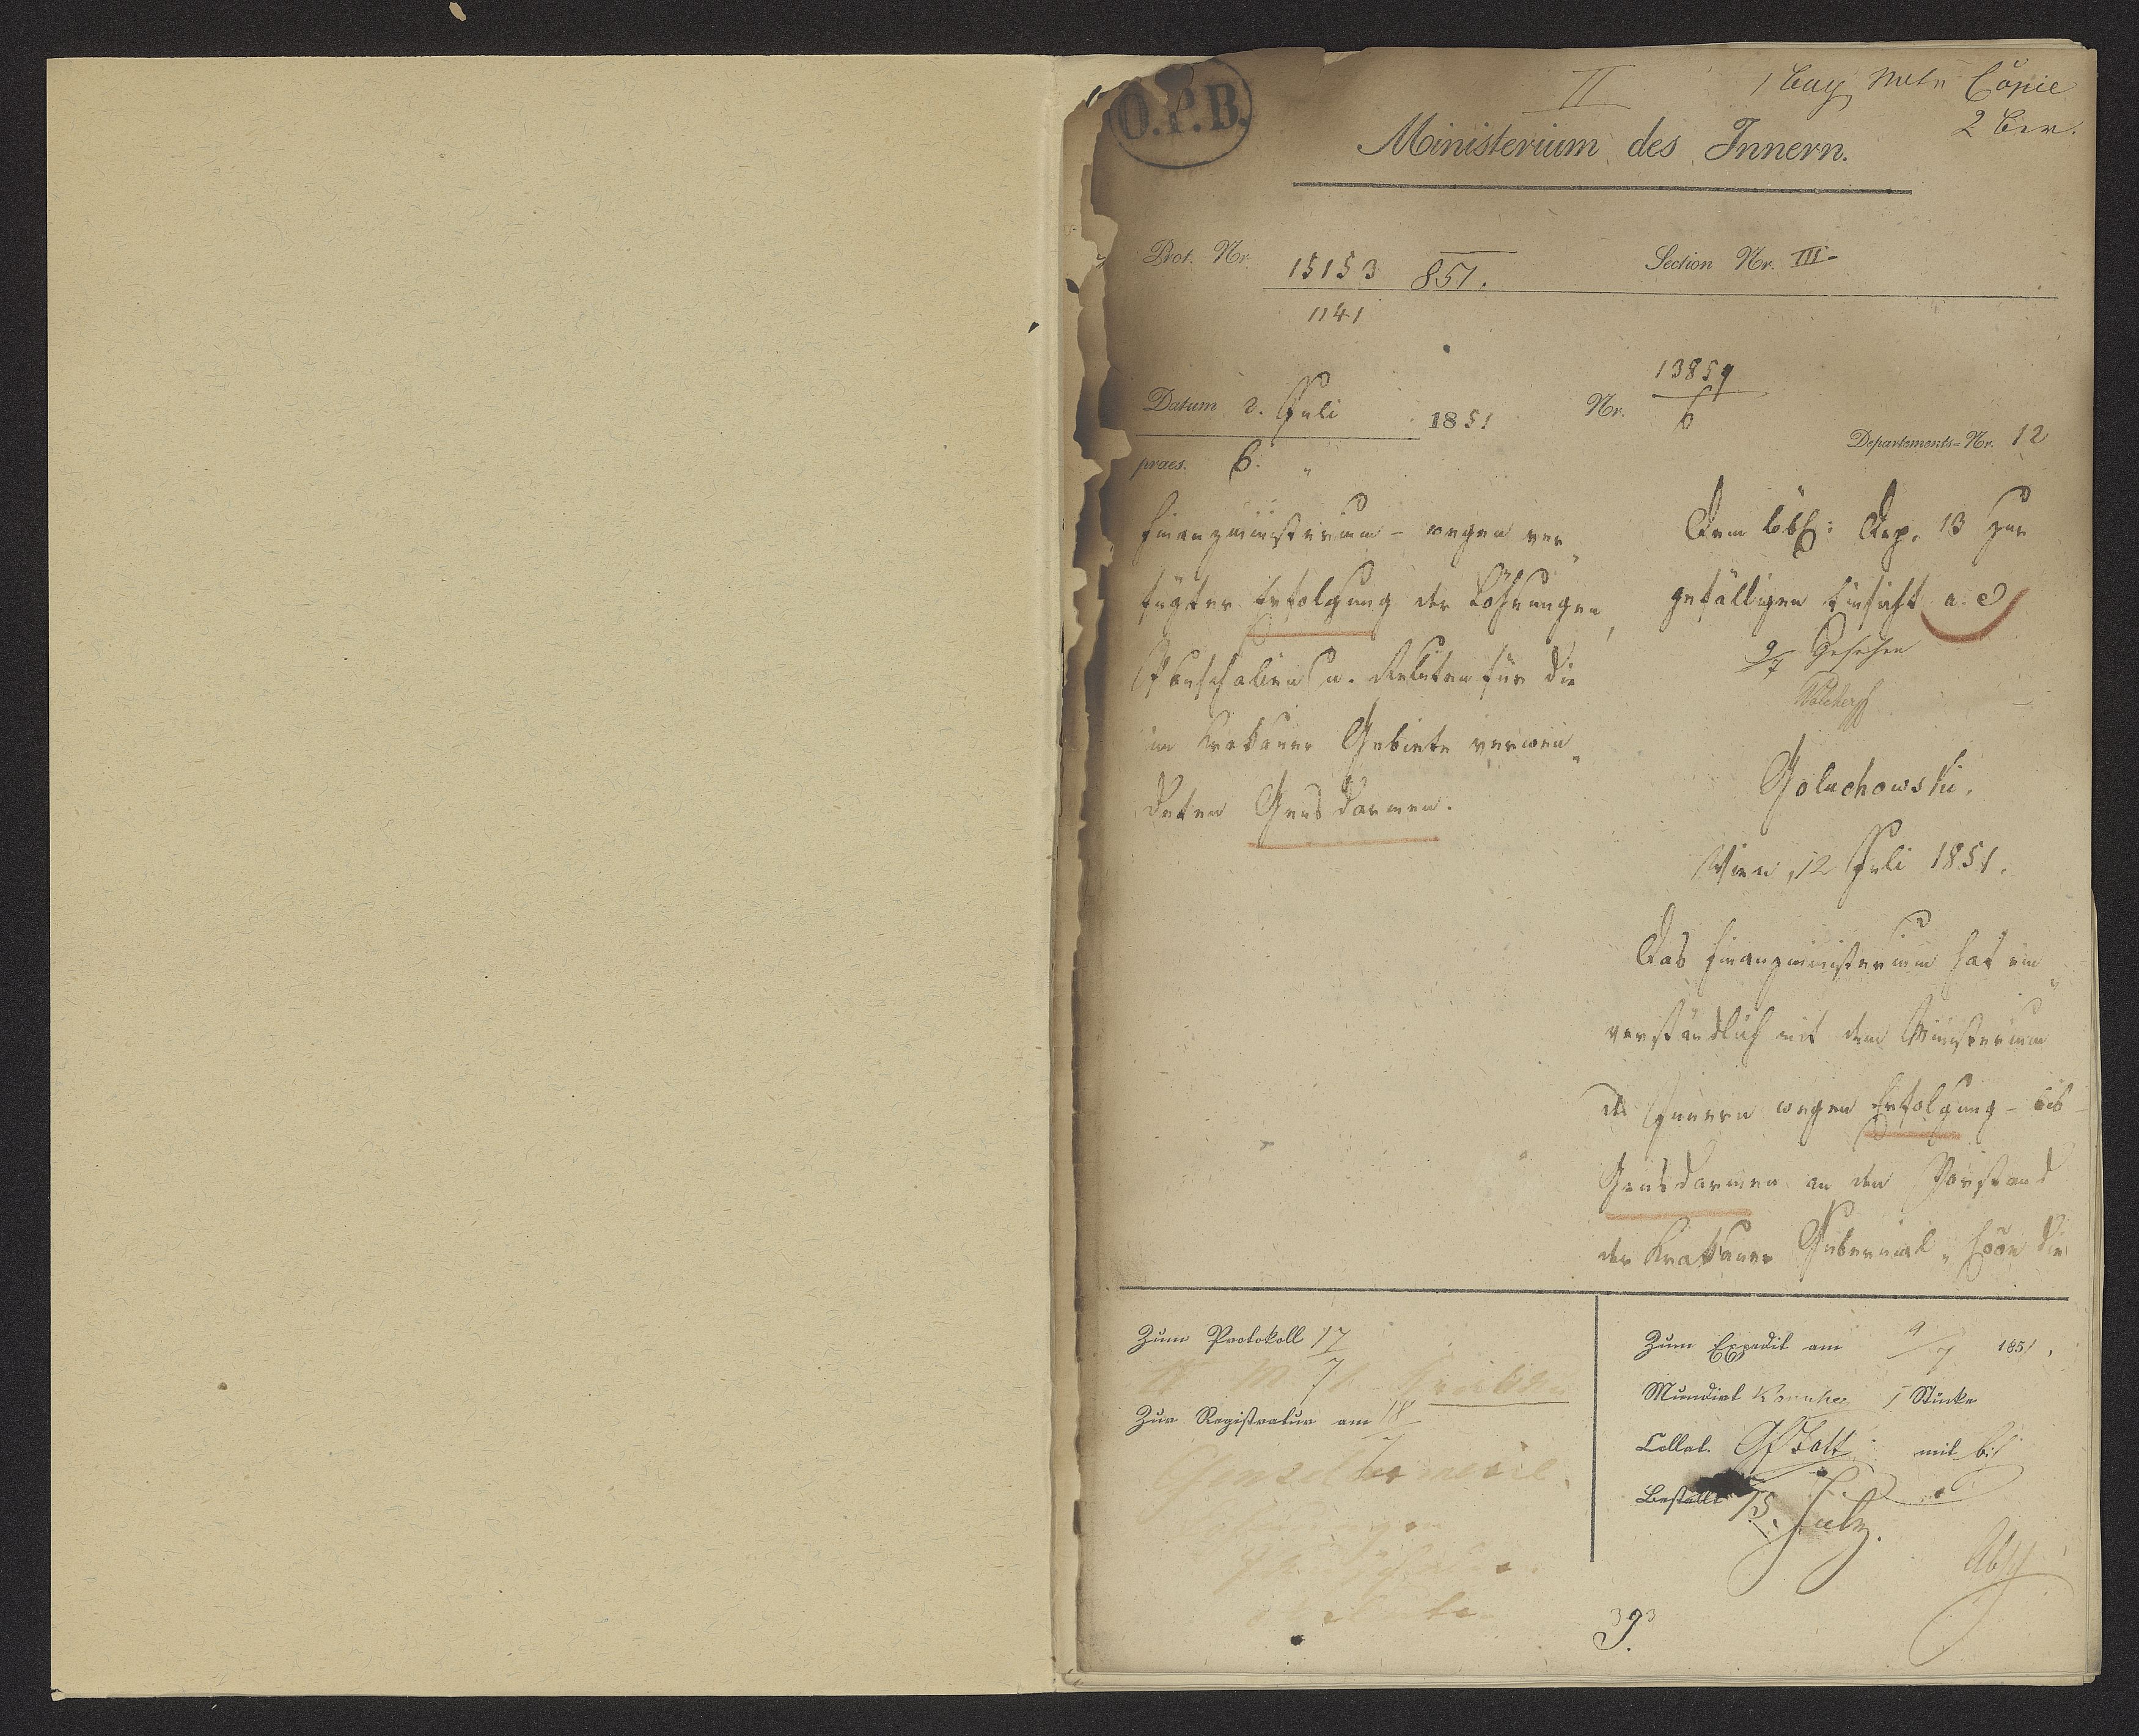 O.P.B.
II
1 Bay Note Copie
2 Ber.
Ministerium des Innern.
Prot. Nr. 15153 851.
1141
Section Nr. III
Datum 2. Juli 1851
Nr. 13859
6
praes. 6. "
Departements-Nr. 12
Finanzministerium - wegen ver„
fügter Erfolgung der Löhnungen,
Pauschalien u. Reluten für die
im Krakauer Gebiete verwen„
deten Gensdarmen.
Dem löbl: Dep. 13 zur
gefälligen Einsicht a. e
9/7 Gesehen
Goluchowski.
Wien, 12 Juli 1851.
Das Finanzministerium hat ein„
verständlich mit dem Ministerium
des Innern wegen Erfolgung - bis -
Gensdarmen an den Vorstand
der Krakauer Gubernial„ die
Zum Protokoll 17
7
Zur Registratur am 18
7
Gensdarmerie
Löhnungen
Pauschalien
Reluten
Zum Expedit am 9/7 1851.
Mundirt 1 Stücke
Collat. mit bei
Bestellt 15. July.